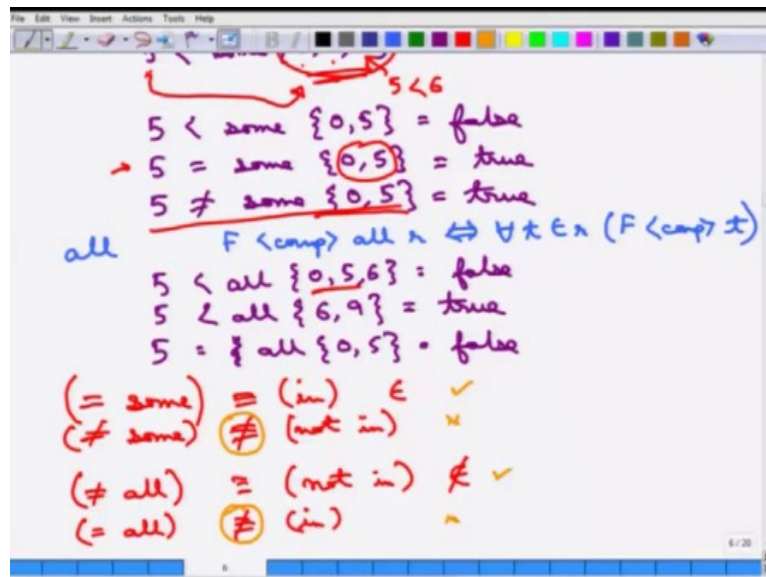 File Edit View Insert Actions Tools Help
5 < 6
5 < some {0,5} = false
→ 5 = some {0,5} = true
5 ≠ some {0,5} = true
all F <comp> all r ⇔ ∀ t ∈ r (F <comp> t)
5 < all {0,5,6} = false
5 < all {6,9} = true
5 = { all {0,5} = false
(= some) ≡ (in) ∈ ✓
(≠ some) ≢ (not in) ×
(≠ all) ≡ (not in) ∉ ✓
(= all) ≢ (in) ×
6 / 20